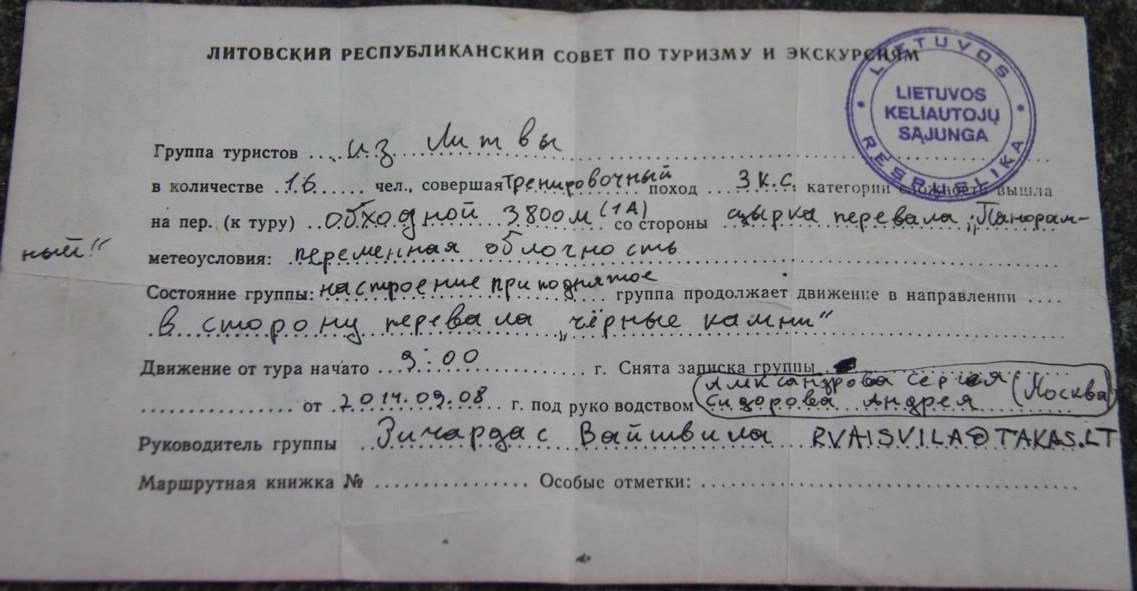 ЛИТОВСКИЙ РЕСПУБЛИКАНСКИЙ СОВЕТ ПО ТУРИЗМУ И ЭКСКУРСИЯМ
LIETUVOS
LIETUVOS
KELIAUTOJŲ
SĄJUNGA
RESPUBLIKA
Группа туристов из Литвы
в количестве 16 чел., совершая тренировочный поход 3 к.с. категории сложности вышла
на пер. (к туру) обходной 3800м (1А) со стороны цырка перевала „Панорам-
ный"
метеоусловия: переменная облочность
Состояние группы: настроение приподнятое группа продолжает движение в направлении
в сторону перевала „чёрные камни"
Движение от тура начато 9:00 г. Снята записка группы
Александрова Сергея (Москва)
от 2014.09.08 г. под руководством Сидорова Андрея
Руководитель группы Ричардас Вайшвила RVAISVILA@TAKAS.LT
Маршрутная книжка № Особые отметки: